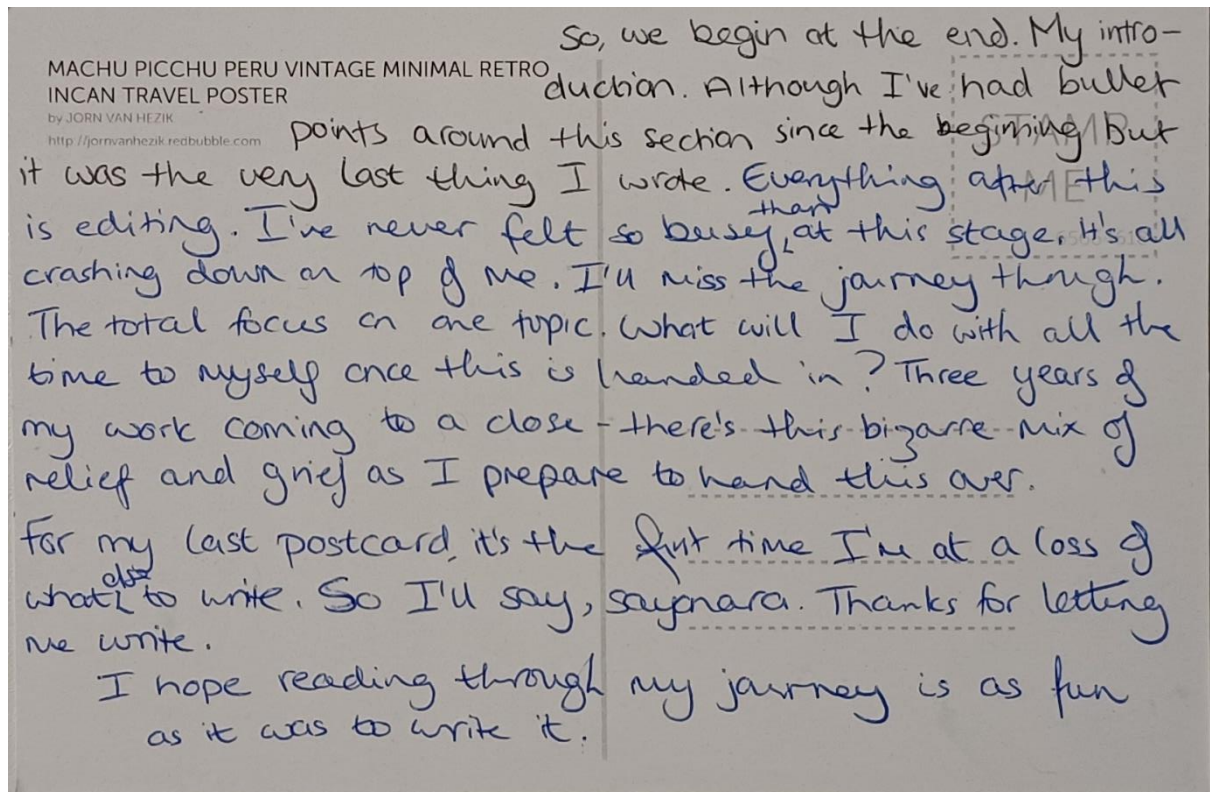 So, we begin at the end. My intro-
MACHU PICCHU PERU VINTAGE MINIMAL RETRO
INCAN TRAVEL POSTER
by JORN VAN HEZIK
http://jornvanhezik.redbubble.com
duction. Although I've had bullet
points around this section since the beginning but
it was the very last thing I wrote. Everything after this
is editing. I've never felt so busy than at this stage. It's all
crashing down on top of me. I'll miss the journey though.
The total focus on one topic. What will I do with all the
time to myself once this is handed in? Three years of
my work coming to a close - there's this bizarre mix of
relief and grief as I prepare to hand this over.
For my last postcard, it's the first time I'm at a loss of
what else to write. So I'll say, sayonara. Thanks for letting
me write.
I hope reading through my journey is as fun
as it was to write it.
STAMP
ME